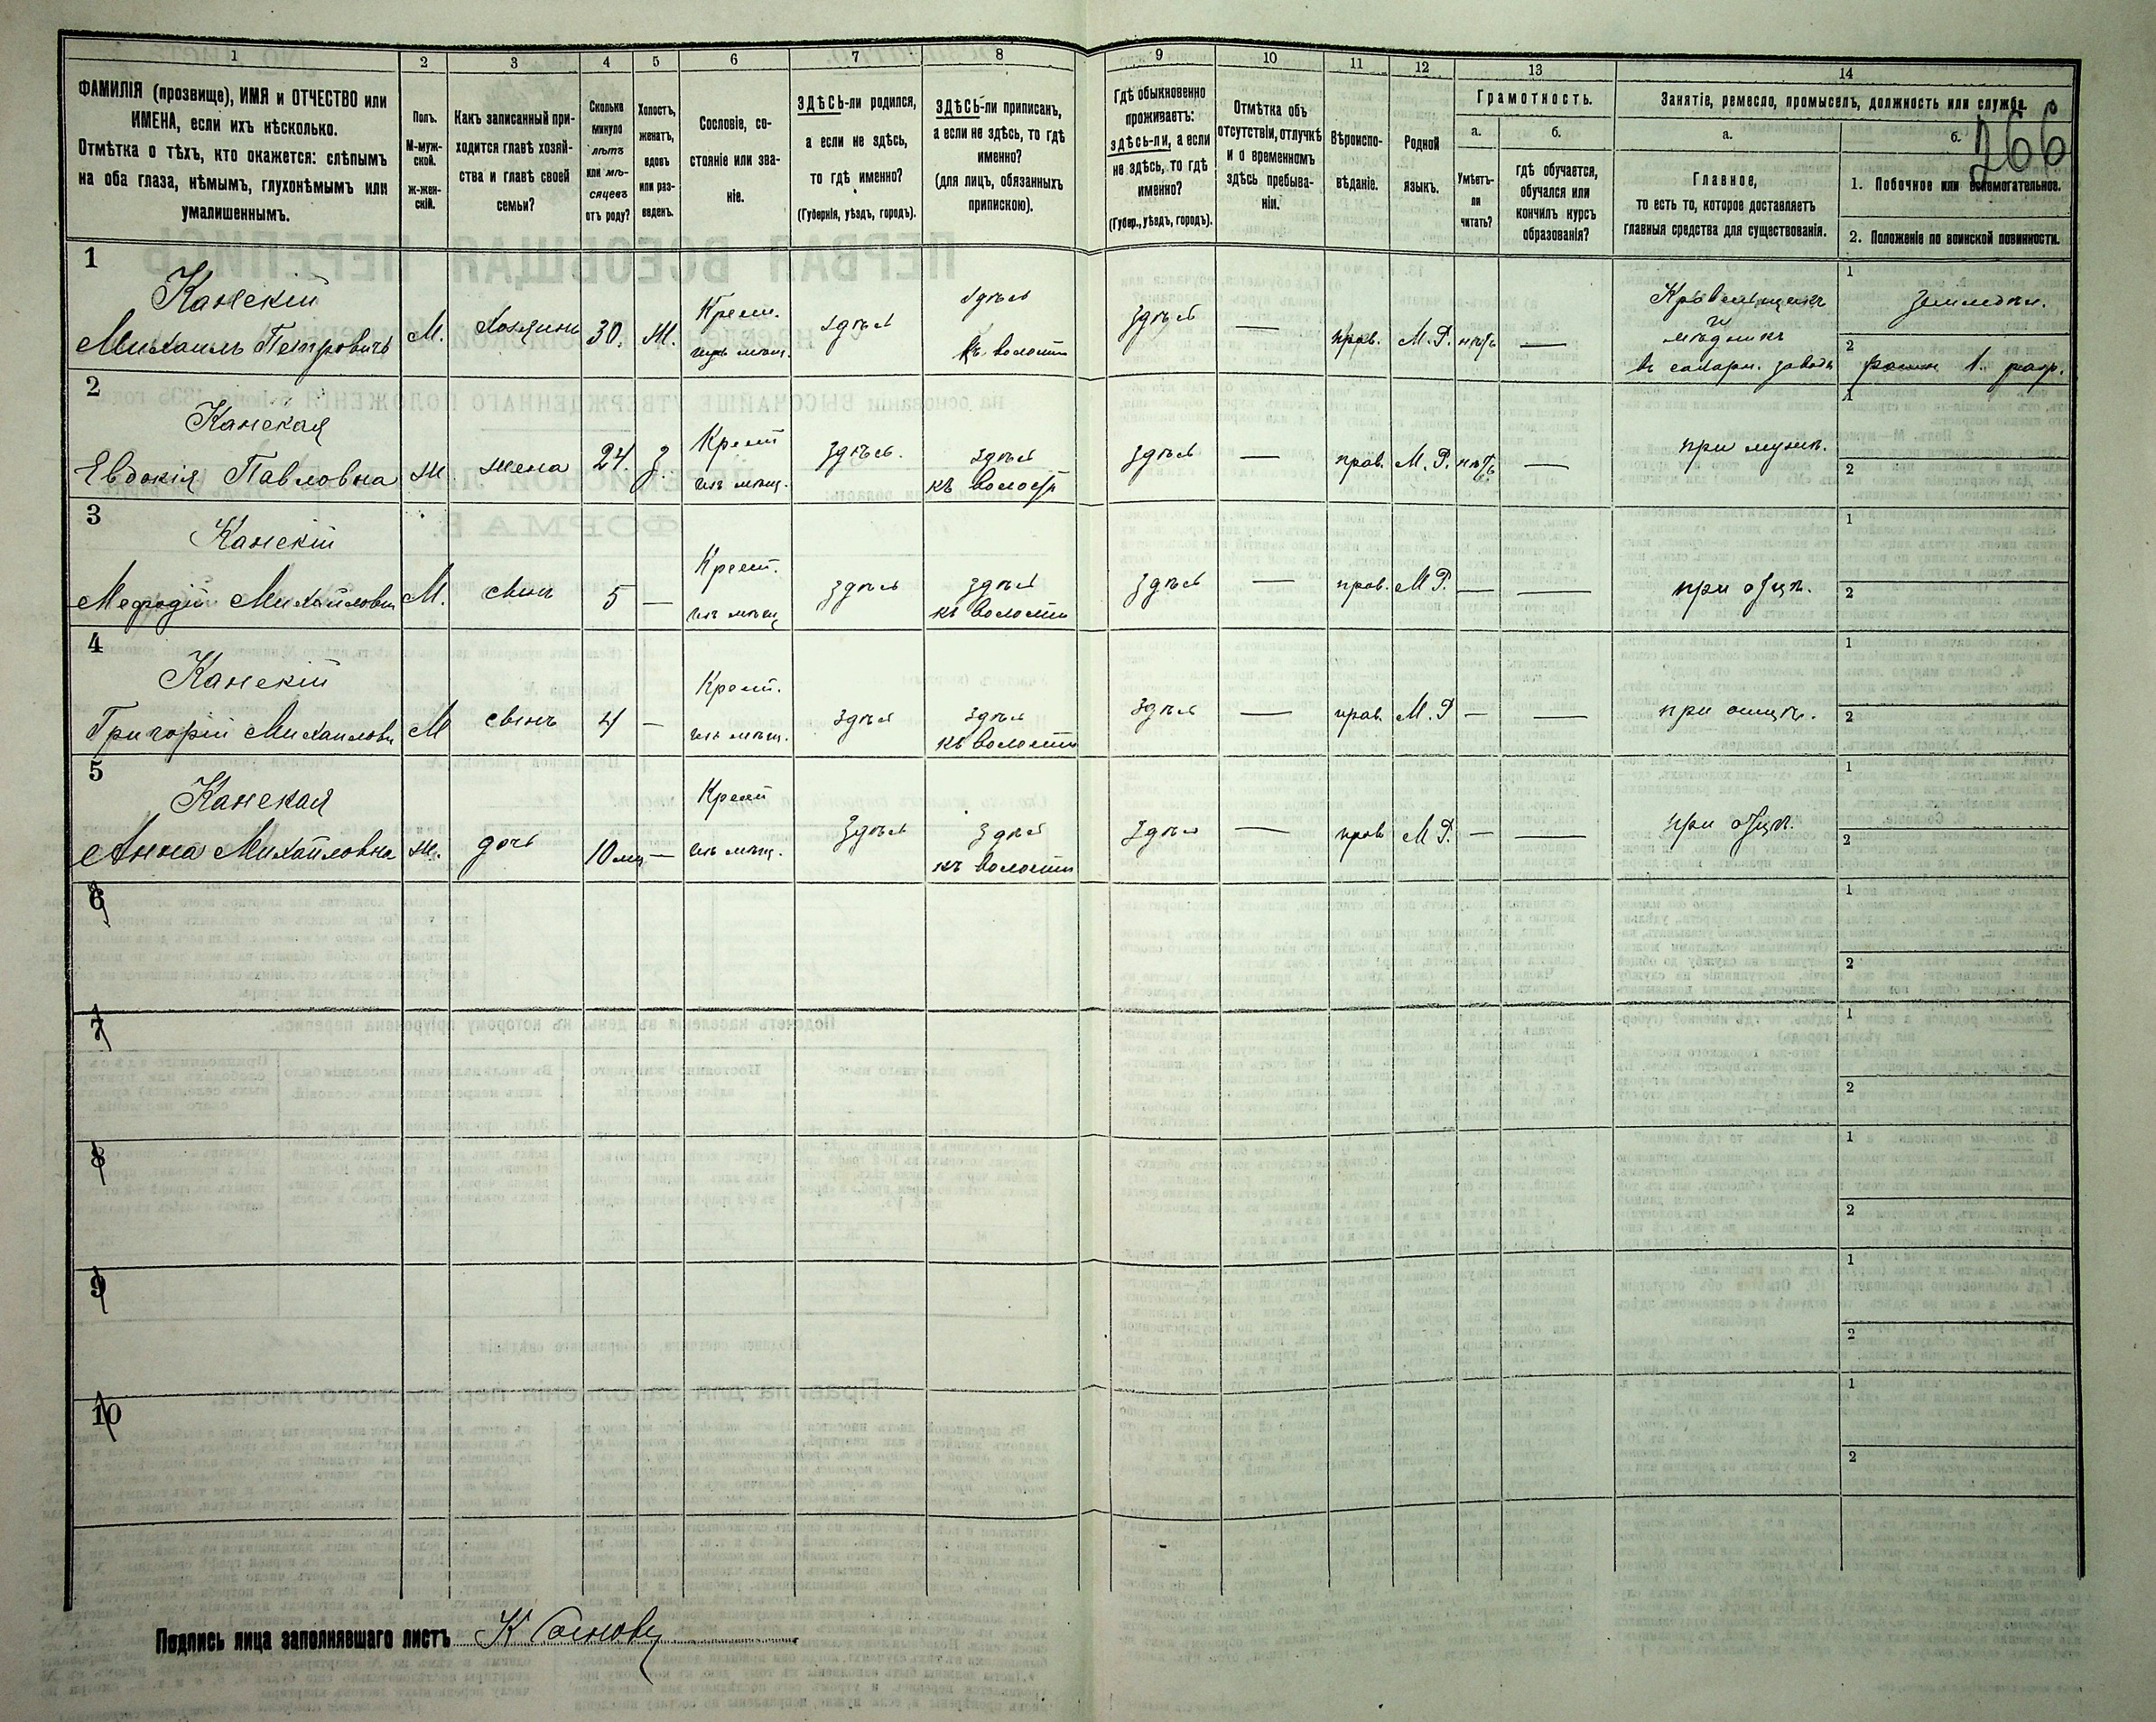 1 2 3 4 5 6 7 8 9 10 11 12 13 14
ФАМИЛІЯ (прозвище), ИМЯ и ОТЧЕСТВО или
ИМЕНА, если ихъ нѣсколько.
Отмѣтка о тѣхъ, кто окажется: слѣпымъ
на оба глаза, нѣмымъ, глухонѣмымъ или
умалишеннымъ.
Полъ.
М-муж-
ской.
Ж-жен-
скій.
Какъ записанный при-
ходится главѣ хозяй-
ства и главѣ своей
семьи?
Сколько
минуло
лѣтъ
или мѣ-
сяцевъ
отъ роду?
Холостъ,
женатъ,
вдовъ
или раз-
веденъ.
Сословіе, со-
стояніе или зва-
ніе.
ЗДѢСЬ-ли родился,
а если не здѣсь,
то гдѣ именно?
(Губернія, уѣздъ, городъ).
ЗДѢСЬ-ли приписанъ,
а если не здѣсь, то гдѣ
именно?
(для лицъ, обязанныхъ
припискою).
Гдѣ обыкновенно
проживаетъ:
здѣсь-ли, а если
не здѣсь, то гдѣ
именно?
(Губер., уѣздъ, городъ).
Отмѣтка объ
отсутствіи, отлучкѣ
и о временномъ
здѣсь пребыва-
ніи.
Вѣроиспо-
вѣданіе.
Родной
языкъ.
Грамотность.
а.
Умѣетъ-
ли
читать?
б.
гдѣ обучается,
обучался или
кончилъ курсъ
образованія?
Занятіе, ремесло, промыселъ, должность или служба.
266
а.
Главное,
то есть то, которое доставляетъ
главныя средства для существованія.
б.
1. Побочное или вспомогательное.
2. Положеніе по воинской повинности.
1
Канскій
Михаилъ Петровичъ М. Хозяинъ 30. М. Крест. здѣсь здѣсь къ волости здѣсь — прав. М. Р. нѣтъ —
и мѣдникъ
въ сахарн. заводѣ
1 земледѣл.
2 1 разр.
2
Канская
Евдокія Павловна ж жена 24. З. Крест здѣсь. здѣсь къ волост здѣсь — прав. М. Р. нѣтъ —
при мужѣ.
1
2
3
Канскій
Мефодій Михайлович М. сынъ 5 — Крест. здѣсь здѣсь къ волости здѣсь — прав. М Р. — —
при отцѣ.
1
2
4
Канскій
Григорій Михайлови М сынъ 4 — Крест. здѣсь здѣсь къ волости здѣсь — прав. М. Р — —
при отцѣ.
1
2
5
Канская
Анна Михайловна ж. дочь 10 мц — Крест здѣсь здѣсь къ волости здѣсь — прав М Р. — —
при отцѣ.
1
2
6
1
2
7
1
2
8
1
2
9
1
2
10
1
2
Подпись лица заполнявшаго листъ К